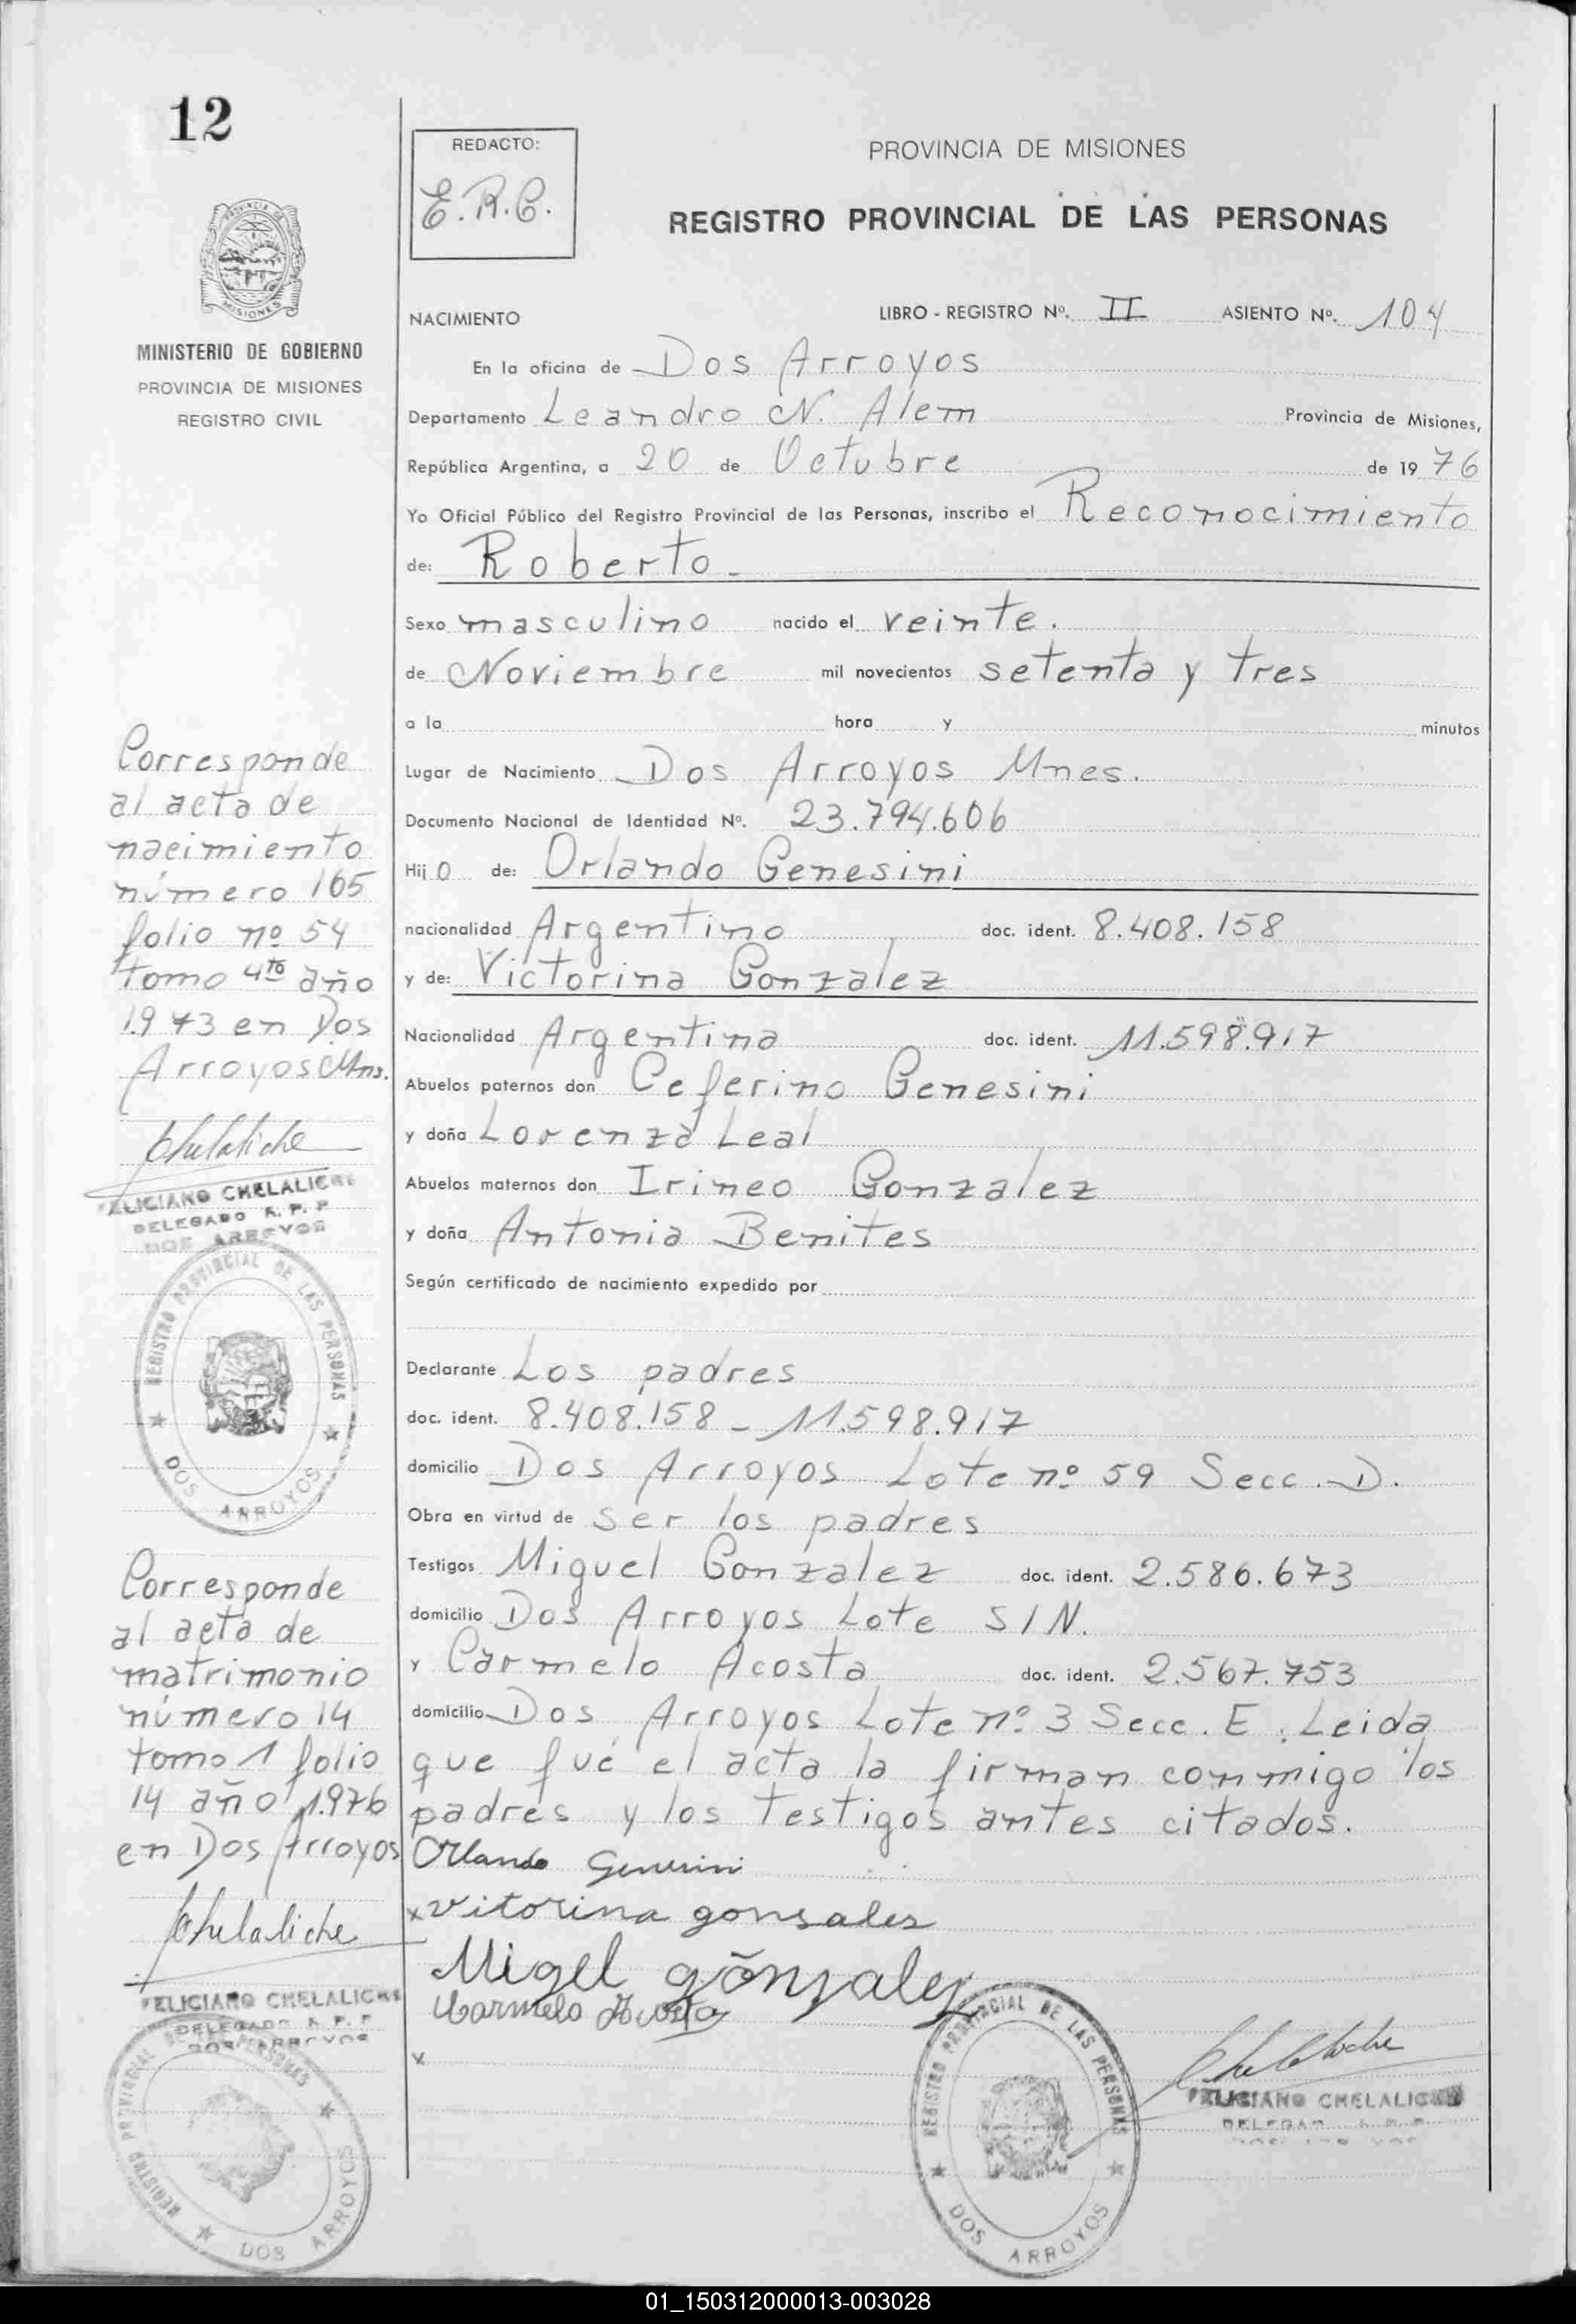 12
REDACTO:
E.R.C.
PROVINCIA DE MISIONES
REGISTRO PROVINCIAL DE LAS PERSONAS
PROVINCIA DE
MISIONES
MINISTERIO DE GOBIERNO
PROVINCIA DE MISIONES
REGISTRO CIVIL
NACIMIENTO LIBRO - REGISTRO Nº. II ASIENTO Nº. 104
En la oficina de Dos Arroyos
Departamento Leandro N. Alem Provincia de Misiones,
República Argentina, a 20 de Octubre de 19 76
Yo Oficial Público del Registro Provincial de las Personas, inscribo el Reconocimiento
de: Roberto.
Sexo masculino nacido el veinte.
de Noviembre mil novecientos setenta y tres
a la hora y minutos
Lugar de Nacimiento Dos Arroyos Mnes.
Documento Nacional de Identidad Nº. 23.794.606
Hij o de: Orlando Genesini
nacionalidad Argentino doc. ident. 8.408.158
y de: Victorina Gonzalez
Nacionalidad Argentina doc. ident. 11.598.917
Abuelos paternos don Ceferino Genesini
y doña Lorenza Leal
Abuelos maternos don Irineo Gonzalez
y doña Antonia Benites
Según certificado de nacimiento expedido por
Declarante Los padres
doc. ident. 8.408.158 - 11.598.917
domicilio Dos Arroyos Lote nº 59 Secc. D.
Obra en virtud de ser los padres
Testigos Miguel Gonzalez doc. ident. 2.586.673
domicilio Dos Arroyos Lote S/N.
y Carmelo Acosta doc. ident. 2.567.753
domicilio Dos Arroyos Lote nº 3 Secc. E. Leida
que fué el acta la firman conmigo los
padres y los testigos antes citados.
Orlando Genesini
x Vitorina gonsales
Migel gonzalez
Carmelo Acosta
x
Corresponde
al acta de
nacimiento
número 165
folio nº 54
tomo 4to año
1973 en Dos
Arroyos Mns.
Chelaliche
FELICIANO CHELALICHE
DELEGADO R. P. P
DOS ARROYOS
REGISTRO PROVINCIAL DE LAS PERSONAS
DOS ARROYOS
Corresponde
al acta de
matrimonio
número 14
tomo 1 folio
14 año 1.976
en Dos Arroyos
Chelaliche
FELICIANO CHELALICHE
DELEGADO R. P. P
DOS ARROYOS
REGISTRO PROVINCIAL DE LAS PERSONAS
DOS ARROYOS
REGISTRO PROVINCIAL DE LAS PERSONAS
DOS ARROYOS
Chelaliche
FELICIANO CHELALICHE
01_150312000013-003028